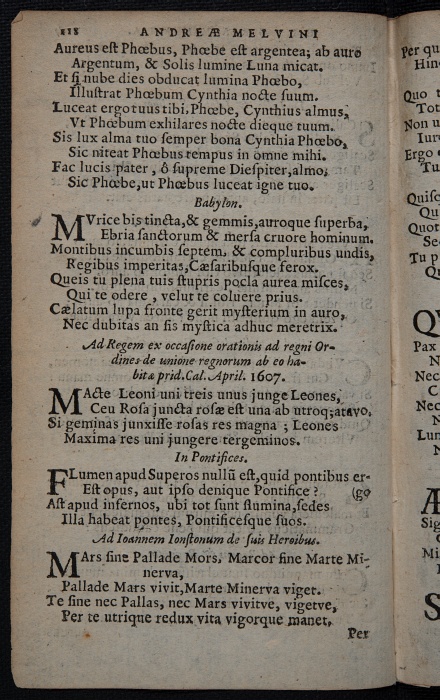 118 ANDREÆ MELVINI
Aureus est Phœbus, Phœbe est argentea; ab auro
Argentum, & Solis lumine Luna micat.
Et si nube dies obducat lumina Phœbo,
Illustrat Phœbum Cynthia nocte suum.
Luceat ergo tuus tibi, Phœbe, Cynthius almus,
Vt Phœbum exhilares nocte dieque tuum.
Sis lux alma tuo semper bona Cynthia Phœbo,
Sic niteat Phœbus tempus in omne mihi.
Fac lucis pater, ô supreme Diespiter, almo,
Sic Phœbe, ut Phœbus luceat igne tuo.
Babylon.
MVrice bis tincta, & gemmis, auroque superba,
Ebria sanctorum & mersa cruore hominum.
Montibus incumbis septem, & compluribus undis,
Regibus imperitas, Cæsaribusque ferox.
Queis tu plena tuis stupris pocla aurea misces,
Qui te odere, velut te coluere prius.
Cælatum lupa fronte gerit mysterium in auro,
Nec dubitas an sis mystica adhuc meretrix.
Ad Regem ex occasione orationis ad regni Or-
dines de unione regnorum ab eo ha-
bitæ prid. Cal. April. 1607.
MActe Leoni uni treis unus junge Leones,
Ceu Rosa juncta rosæ est una ab utroq; atavo,
Si geminas junxisse rosas res magna; Leones
Maxima res uni jungere tergeminos.
In Pontifices.
FLumen apud Superos nullū est, quid pontibus er-
Est opus, aut ipso denique Pontifice? (go
Ast apud infernos, ubi tot sunt flumina, sedes
Illa habeat pontes, Pontificesque suos.
Ad Ioannem Ionstonum de suis Heroibus.
MArs sine Pallade Mors, Marcor sine Marte Mi-
nerva,
Pallade Mars vivit, Marte Minerva viget.
Te sine nec Pallas, nec Mars vivitve, vigetve,
Per te utrique redux vita vigorque manet,
Per